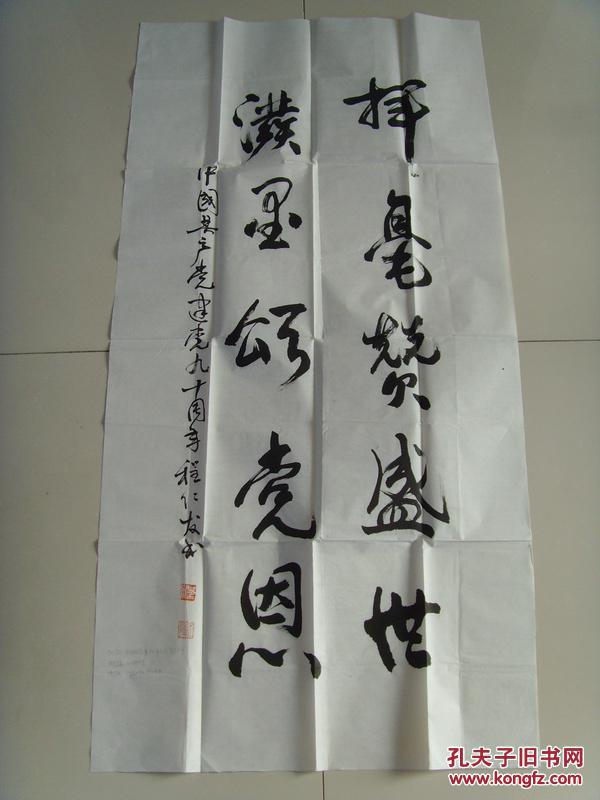 挥毫赞盛世
泼墨颂党恩
中国共产党建党九十周年程仁发书
孔夫子旧书网
www.kongfz.com